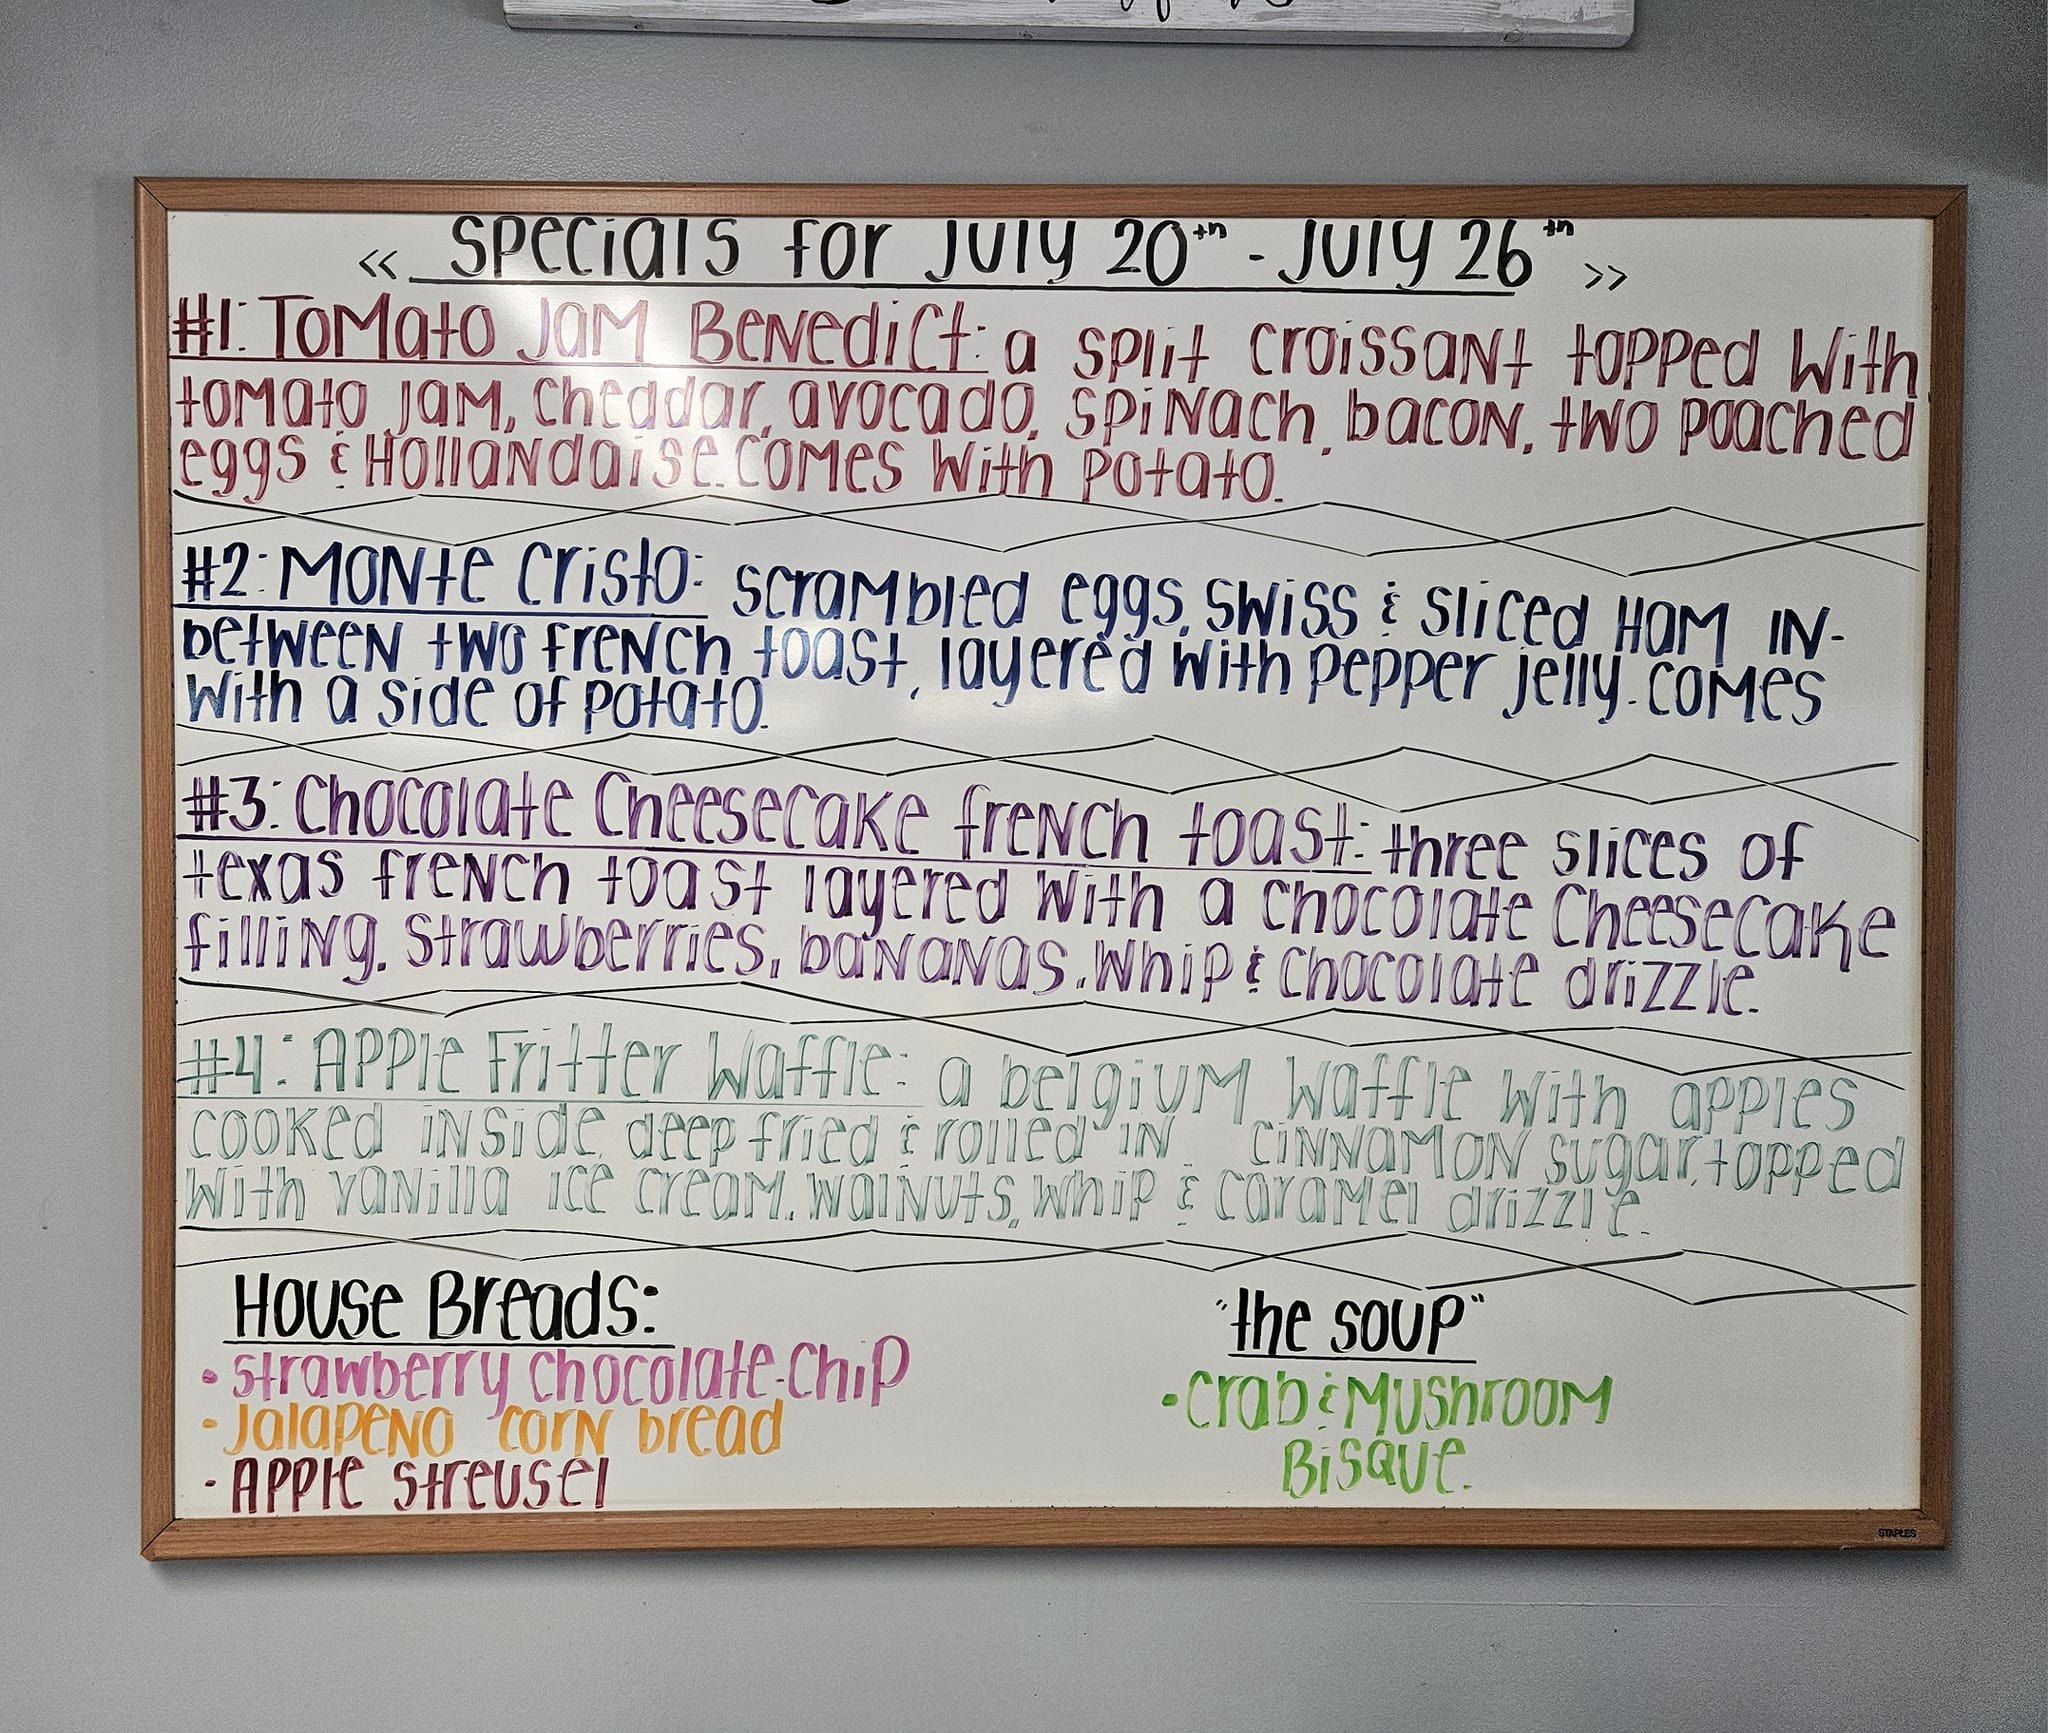 << Specials for July 20th - July 26th >>
#1: Tomato Jam Benedict: a split croissant topped with
tomato jam, cheddar, avocado, spinach, bacon, two poached
eggs & Hollandaise. Comes with potato.
#2: Monte Cristo: scrambled eggs, swiss & sliced Ham in-
between two french toast, layered with pepper jelly. Comes
with a side of potato.
#3: Chocolate Cheesecake french toast: three slices of
texas french toast layered with a chocolate cheesecake
filling, strawberries, bananas, whip & chocolate drizzle.
#4: Apple Fritter Waffle: a belgium waffle with apples
cooked inside, deep fried & rolled in cinnamon sugar, topped
with vanilla ice cream, walnuts, whip & caramel drizzle.
House Breads:
• strawberry chocolate-chip
• Jalapeno corn bread
• Apple streusel
"the soup"
• Crab & Mushroom
Bisque.
STAPLES